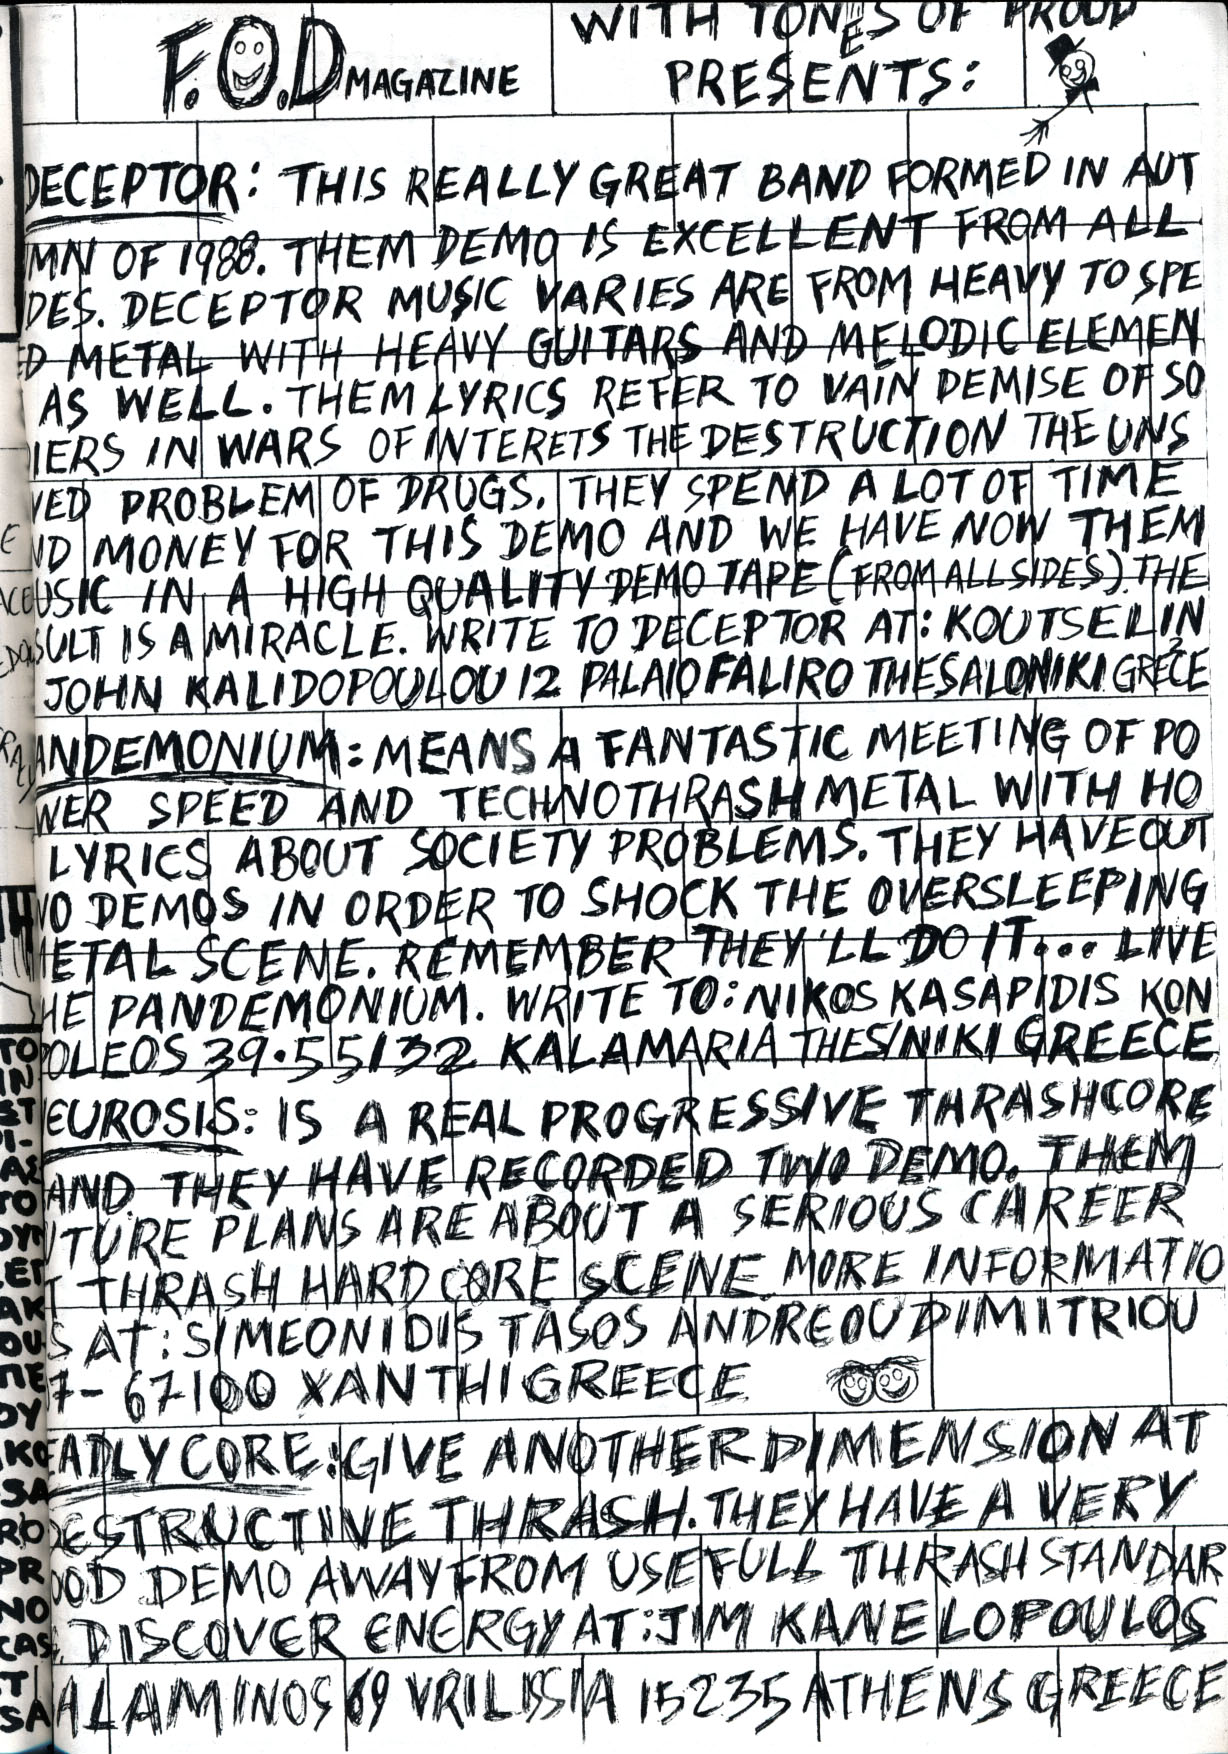 F.O.D MAGAZINE
WITH TONES OF PROUD
PRESENTS:
DECEPTOR: THIS REALLY GREAT BAND FORMED IN AUT
MN OF 1988. THEM DEMO IS EXCELLENT FROM ALL
DES. DECEPTOR MUSIC VARIES ARE FROM HEAVY TO SPE
ED METAL WITH HEAVY GUITARS AND MELODIC ELEMEN
AS WELL. THEM LYRICS REFER TO VAIN DEMISE OF SO
IERS IN WARS OF INTERETS THE DESTRUCTION THE UNS
VED PROBLEM OF DRUGS. THEY SPEND A LOT OF TIME
ND MONEY FOR THIS DEMO AND WE HAVE NOW THEM
USIC IN A HIGH QUALITY DEMO TAPE (FROM ALL SIDES). THE
SULT IS A MIRACLE. WRITE TO DECEPTOR AT: KOUTSELIN
JOHN KALIDOPOULOU 12 PALAIO FALIRO THESALONIKI GRECE
ANDEMONIUM: MEANS A FANTASTIC MEETING OF PO
WER SPEED AND TECHNOTHRASH METAL WITH HO
LYRICS ABOUT SOCIETY PROBLEMS. THEY HAVE OUT
WO DEMOS IN ORDER TO SHOCK THE OVERSLEEPING
METAL SCENE. REMEMBER THEY'LL DO IT... LIVE
HE PANDEMONIUM. WRITE TO: NIKOS KASAPIDIS KON
OLEOS 39·55132 KALAMARIA THES/NIKI GREECE
EUROSIS: IS A REAL PROGRESSIVE THRASHCORE
AND. THEY HAVE RECORDED TWO DEMO. THEM
UTURE PLANS ARE ABOUT A SERIOUS CAREER
T THRASH HARDCORE SCENE MORE INFORMATIO
S AT: SIMEONIDIS TASOS ANDREOU DIMITRIOU
7-67100 XANTHI GREECE
EADLY CORE: GIVE ANOTHER DIMENSION AT
DESTRUCTIVE THRASH. THEY HAVE A VERY
OOD DEMO AWAY FROM USEFULL THRASH STANDAR
DISCOVER ENERGY AT: JIM KANELOPOULOS
ALAMINOS 69 VRILISSIA 15235 ATHENS GREECE